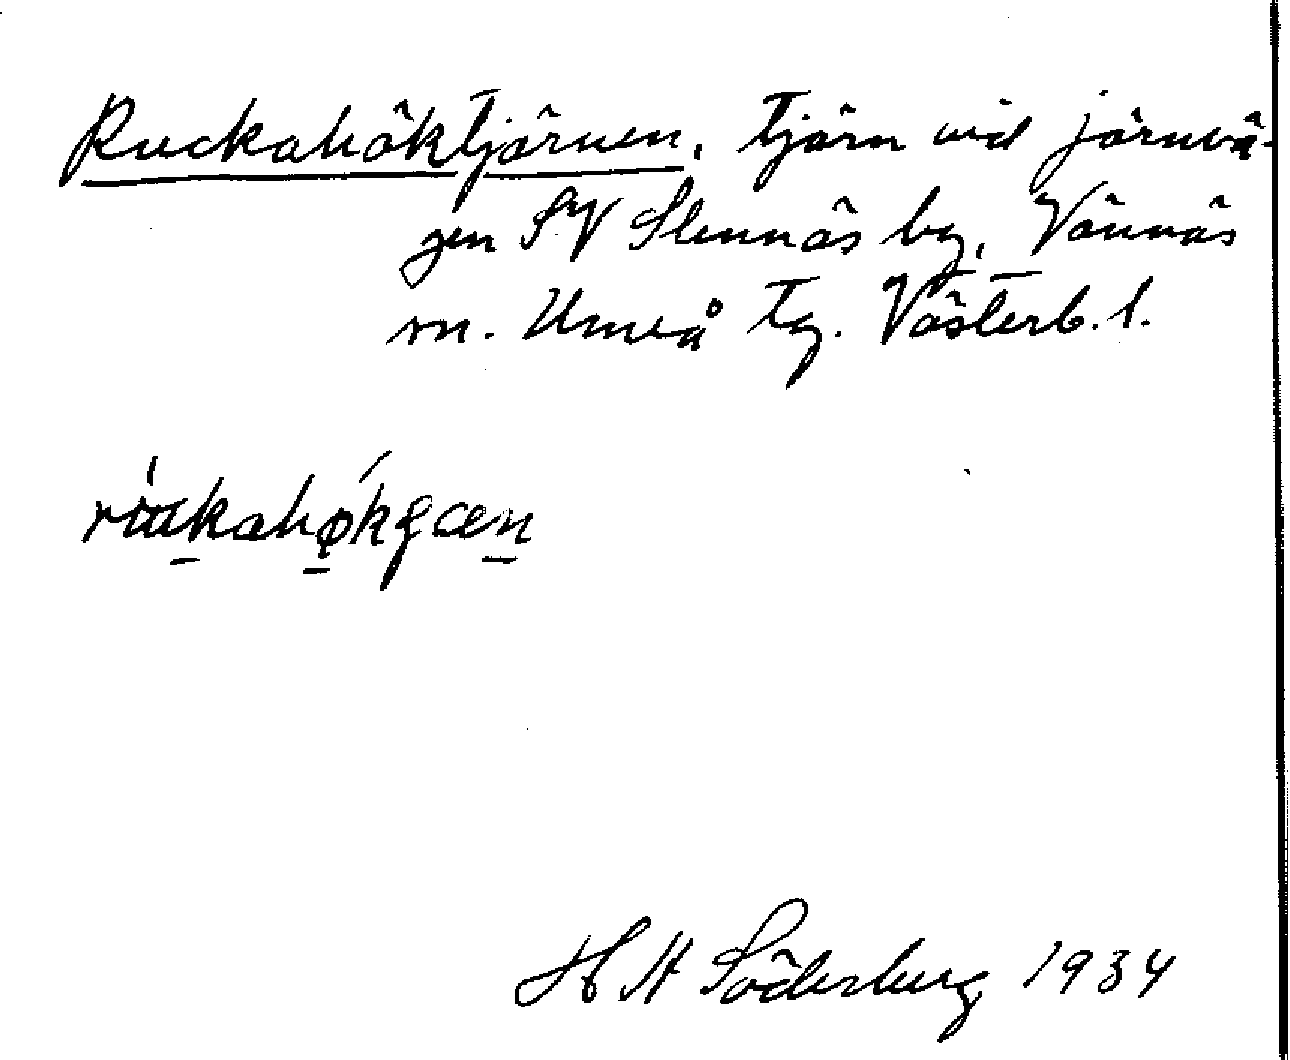 Ruckahöktjärnen, tjärn vid järnvä-
gen SV Stennäs by, Vännäs
sn. Umeå tg. Västerb. l.
H Söderberg 1934